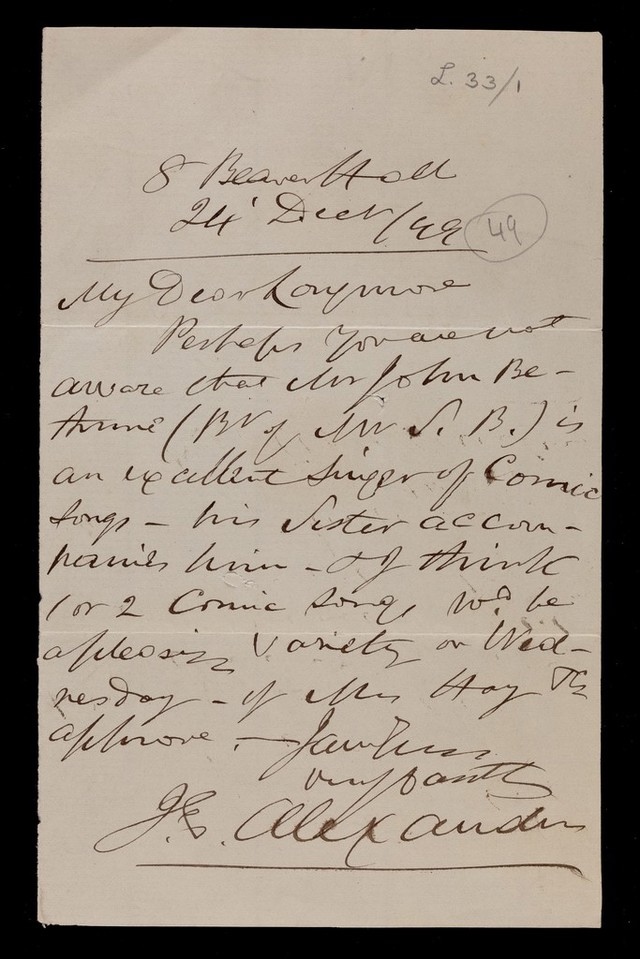 L. 33/1
8 Beaver Hall
24' Decr /49
49
My Dear
Perhaps you are not
aware that Mr John Be-
thune (Br of Mr S. B.) is
an excellent singer of Comic
songs - his Sister accom-
panies him - & I think
1 or 2 Comic songs wod be
a pleasing variety on Wed-
nesday - if Mrs Hay
approve. -
very
J. E. Alexander